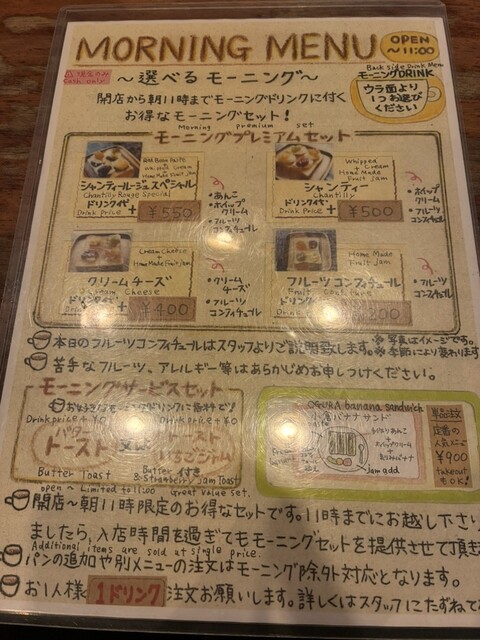 MORNING MENU
OPEN
~11:00
現金のみ
Cash only
~選べるモーニング~
Back side Drink Menu
モーニングDRINK
ウラ面より
1つお選び
ください
開店から朝11時までモーニングドリンクに付く
お得なモーニングセット!
Morning premium set
モーニングプレミアムセット
Red Bean Paste
Whipped Cream
Home Made Fruit Jam
シャンティールージュスペシャル
Chantilly Rouge Special
ドリンク代
Drink price + ¥550
・あんこ
・ホイップクリーム
・フルーツコンフィチュール
Whipped Cream
Home Made
Fruit Jam
シャンティー
Chantilly
ドリンク代
Drink price + ¥500
・ホイップクリーム
・フルーツコンフィチュール
Cream Cheese +
Home Made Fruit Jam
クリームチーズ
Cheese
ドリンク代
Drink price + ¥400
・クリームチーズ
・フルーツコンフィチュール
Home Made
Fruit Jam
フルーツコンフィチュール
Fruit
ドリンク代
フルーツコンフィチュール
本日のフルーツコンフィチュールはスタッフよりご説明致します。
※写真はイメージです。
※季節により変わります
苦手なフルーツ、アレルギー等はあらかじめお申しつけください。
モーニングサービスセット
Drink price + ¥0
Drink price + ¥0
バタートースト
又は
トースト
いちごジャム
Butter Toast
Butter & Strawberry Jam Toast
open ~ Limited to 11:00 Great value set.
OGURA banana sandwich
小倉バナナサンド
Jam add
単品注文
定番の
人気メニュー
¥900
takeout
もOK!
開店~朝11時限定のお得なセットです。11時までにお越し下さい
ましたら、入店時間を過ぎてもモーニングセットを提供させて頂き
Additional items are sold at single price.
パンの追加や別メニューの注文はモーニング除外対応となります。
お1人様1ドリンク注文お願いします。詳しくはスタッフにたずねて